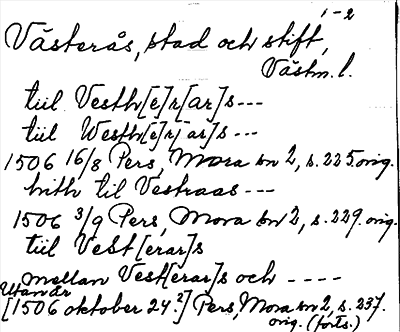 1-2
Västerås, stad och stift,
Västm. l.
tiil Vesth[e]r[ar]s ---
tiil Westh[e]r[ar]s ---
1506 16/8 Pers, Mora sn 2, s. 225 orig.
hith til Vestraas ---
1506 3/9 Pers, Mora sn 2, s. 229. orig.
tiil Vest[erar]s
mellan Vest[erar]s och ----
Utan år
[1506 oktober 24.?] Pers, Mora sn 2, s. 237.
orig. (forts.)